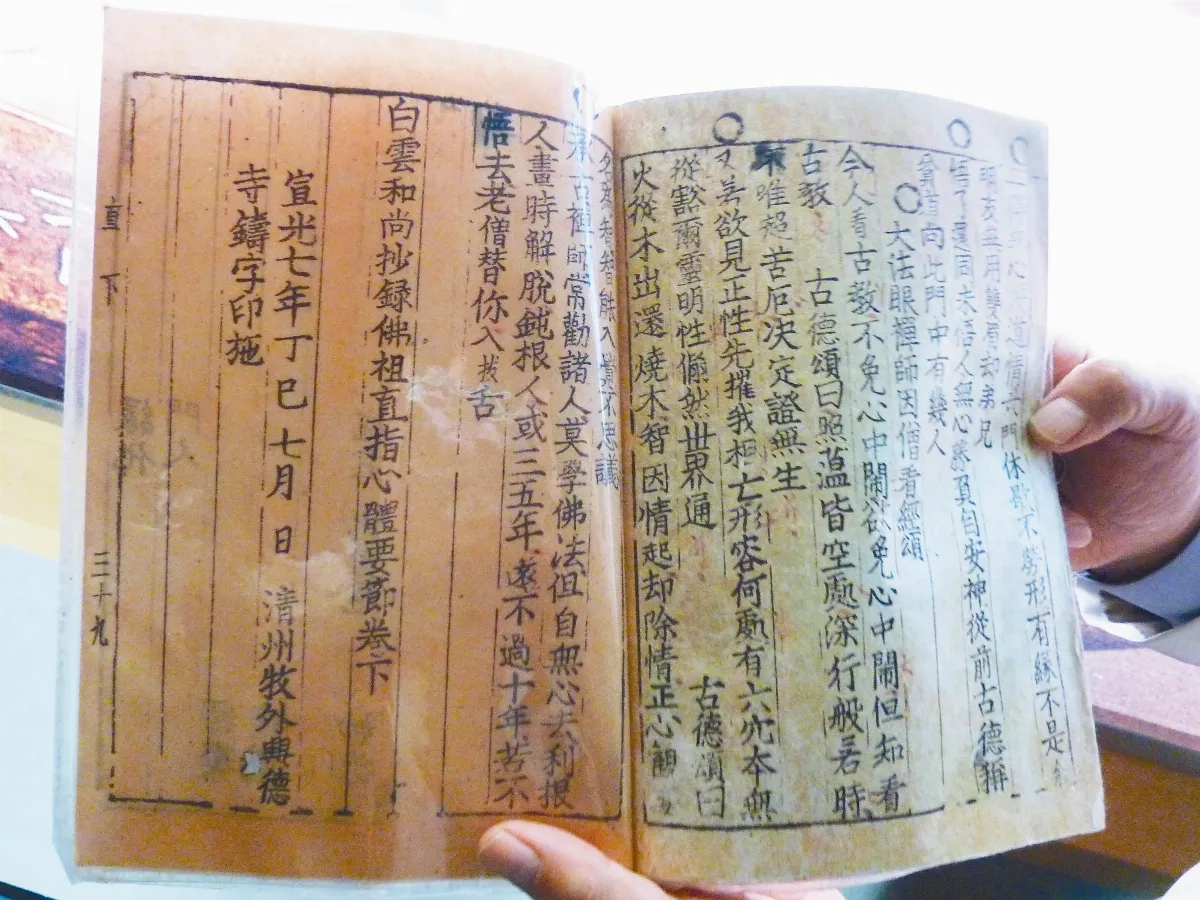 道情六門休歇不勞形有緣不是
明友無用雙眉却弟兄
悟了還同未悟人無心勝負自安神從前古德稱
貧道向此門中有幾人
大法眼禪師因僧看經頌
今人看古教不免心中鬧欲免心中鬧但知看
古教 古德頌曰照蕰皆空處深行般若時
唯超苦厄决定證無生
又善欲見正性先摧我相亡形容何處有六穴本無
從豁爾靈明性儼然世界通 古德頌曰
火從木出還燒木智因情起却除情正心觀
名爲智智能入 不思議
古禪師常勸諸人莫學佛法但自無心去利根
人畫時解脫鈍根人或三五年遠不過十年若不
悟去老僧替你入拔舌
白雲和尚抄録佛祖直指心體要節卷下
宣光七年丁巳七月 日 清州牧外興德
寺鑄字印施
直 下
三十九